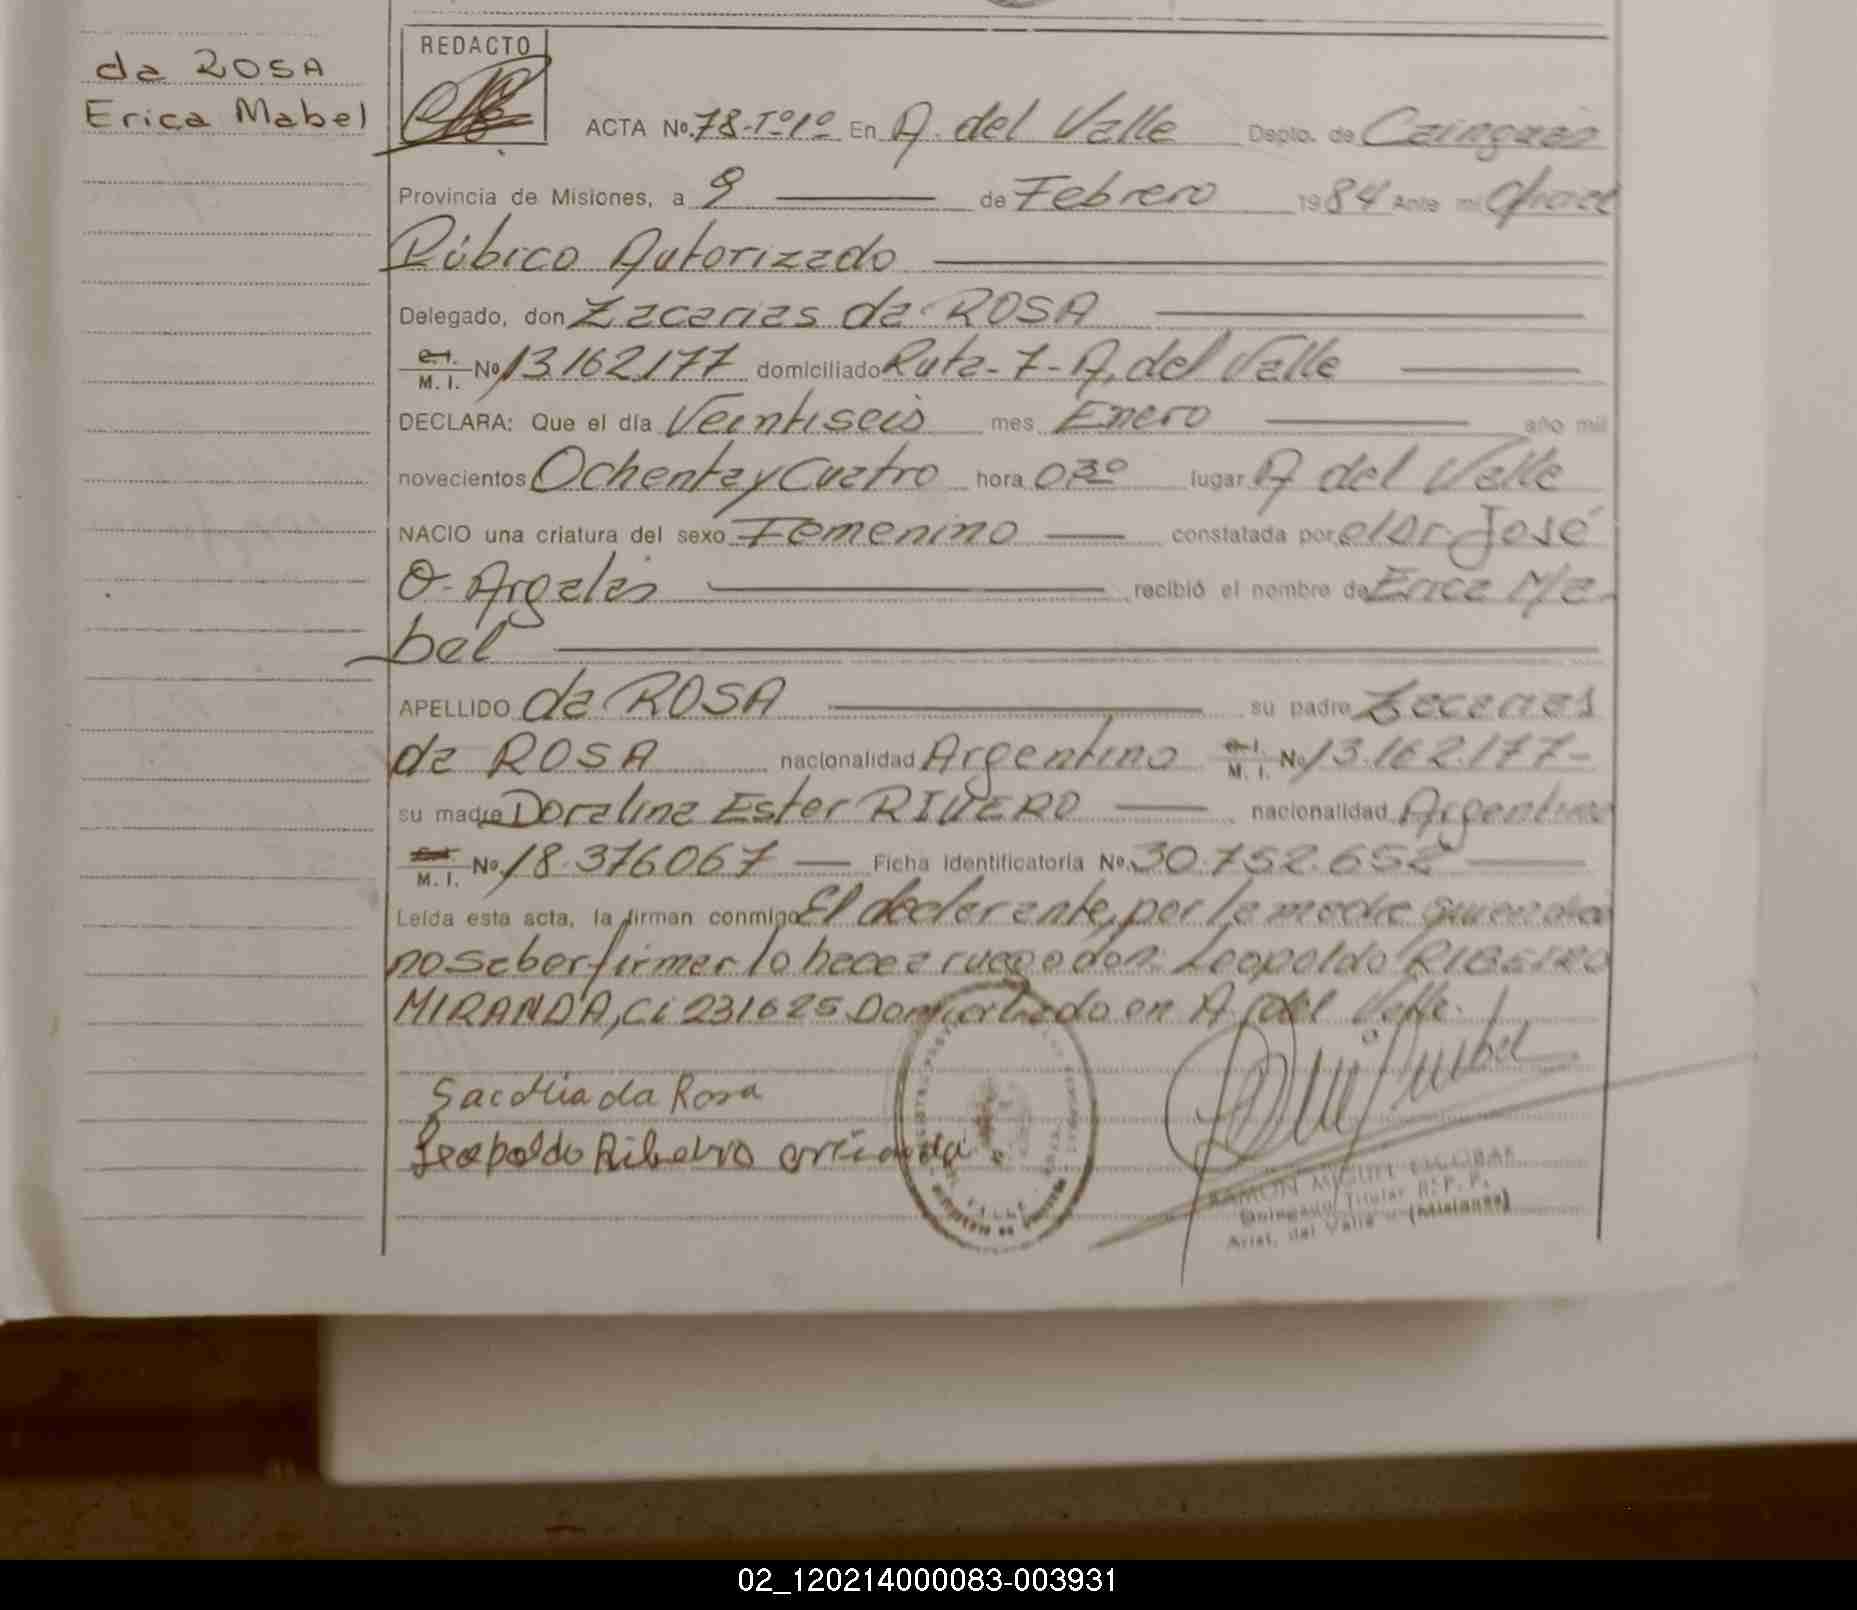 da ROSA
Erica Mabel
REDACTO
ACTA No. 78-Tº1º En A. del Valle Depto. de Cainguas
Provincia de Misiones, a 9 de Febrero 1984 Ante mi
Púbico Autorizado
Delegado, don Zacarias da ROSA
C.I. M. I. No 13162177 domiciliado Ruta-7-A. del Valle
DECLARA: Que el día Veintiseis mes Enero año mil
novecientos Ochenta y Cuatro hora lugar A del Valle
NACIO una criatura del sexo Femenino constatada por el Dr. José
O. recibió el nombre de Erica Ma-
bel
APELLIDO da ROSA su padre Zacarias
da ROSA nacionalidad Argentino C.I. M. I. No 13.162.177-
su madre Doralina Ester RIVERO nacionalidad Argentina
M. I. No. 18.376067 Ficha identificatoria No. 30.752.652
Leída esta acta, la firman conmigo El declarante, por la madre quien dice
no saber firmar lo hace a ruego don: Leopoldo RIBEIRO
MIRANDA, Ci 231625 Domiciliado en A. del Valle.
da Rosa
Leopoldo Ribeiro
RAMON MIGUEL ESCOBAR
Delegado Titular R. P. P.
Arist. del Valle - (Misiones)
02_120214000083-003931